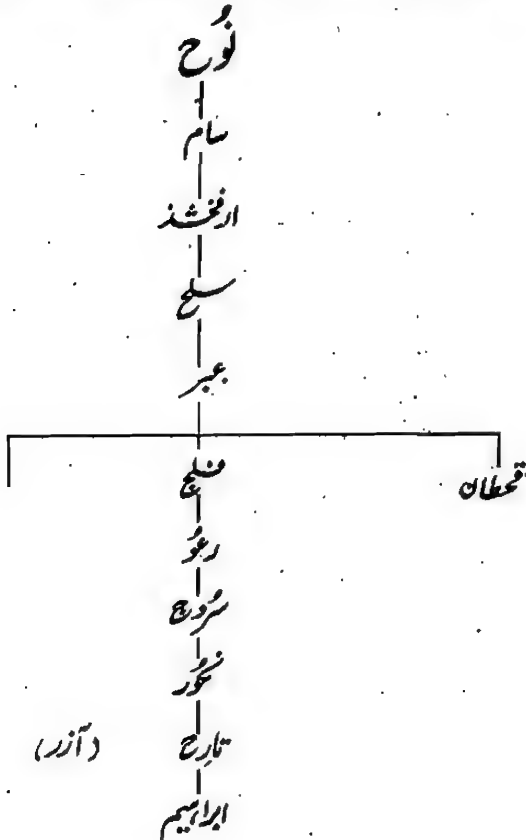 نُوح
سام
ارفخشذ
سلح
عبر
قحطان
فلج
رعُو
سرُوج
نحُور
تارِح (آزر)
ابراہیم